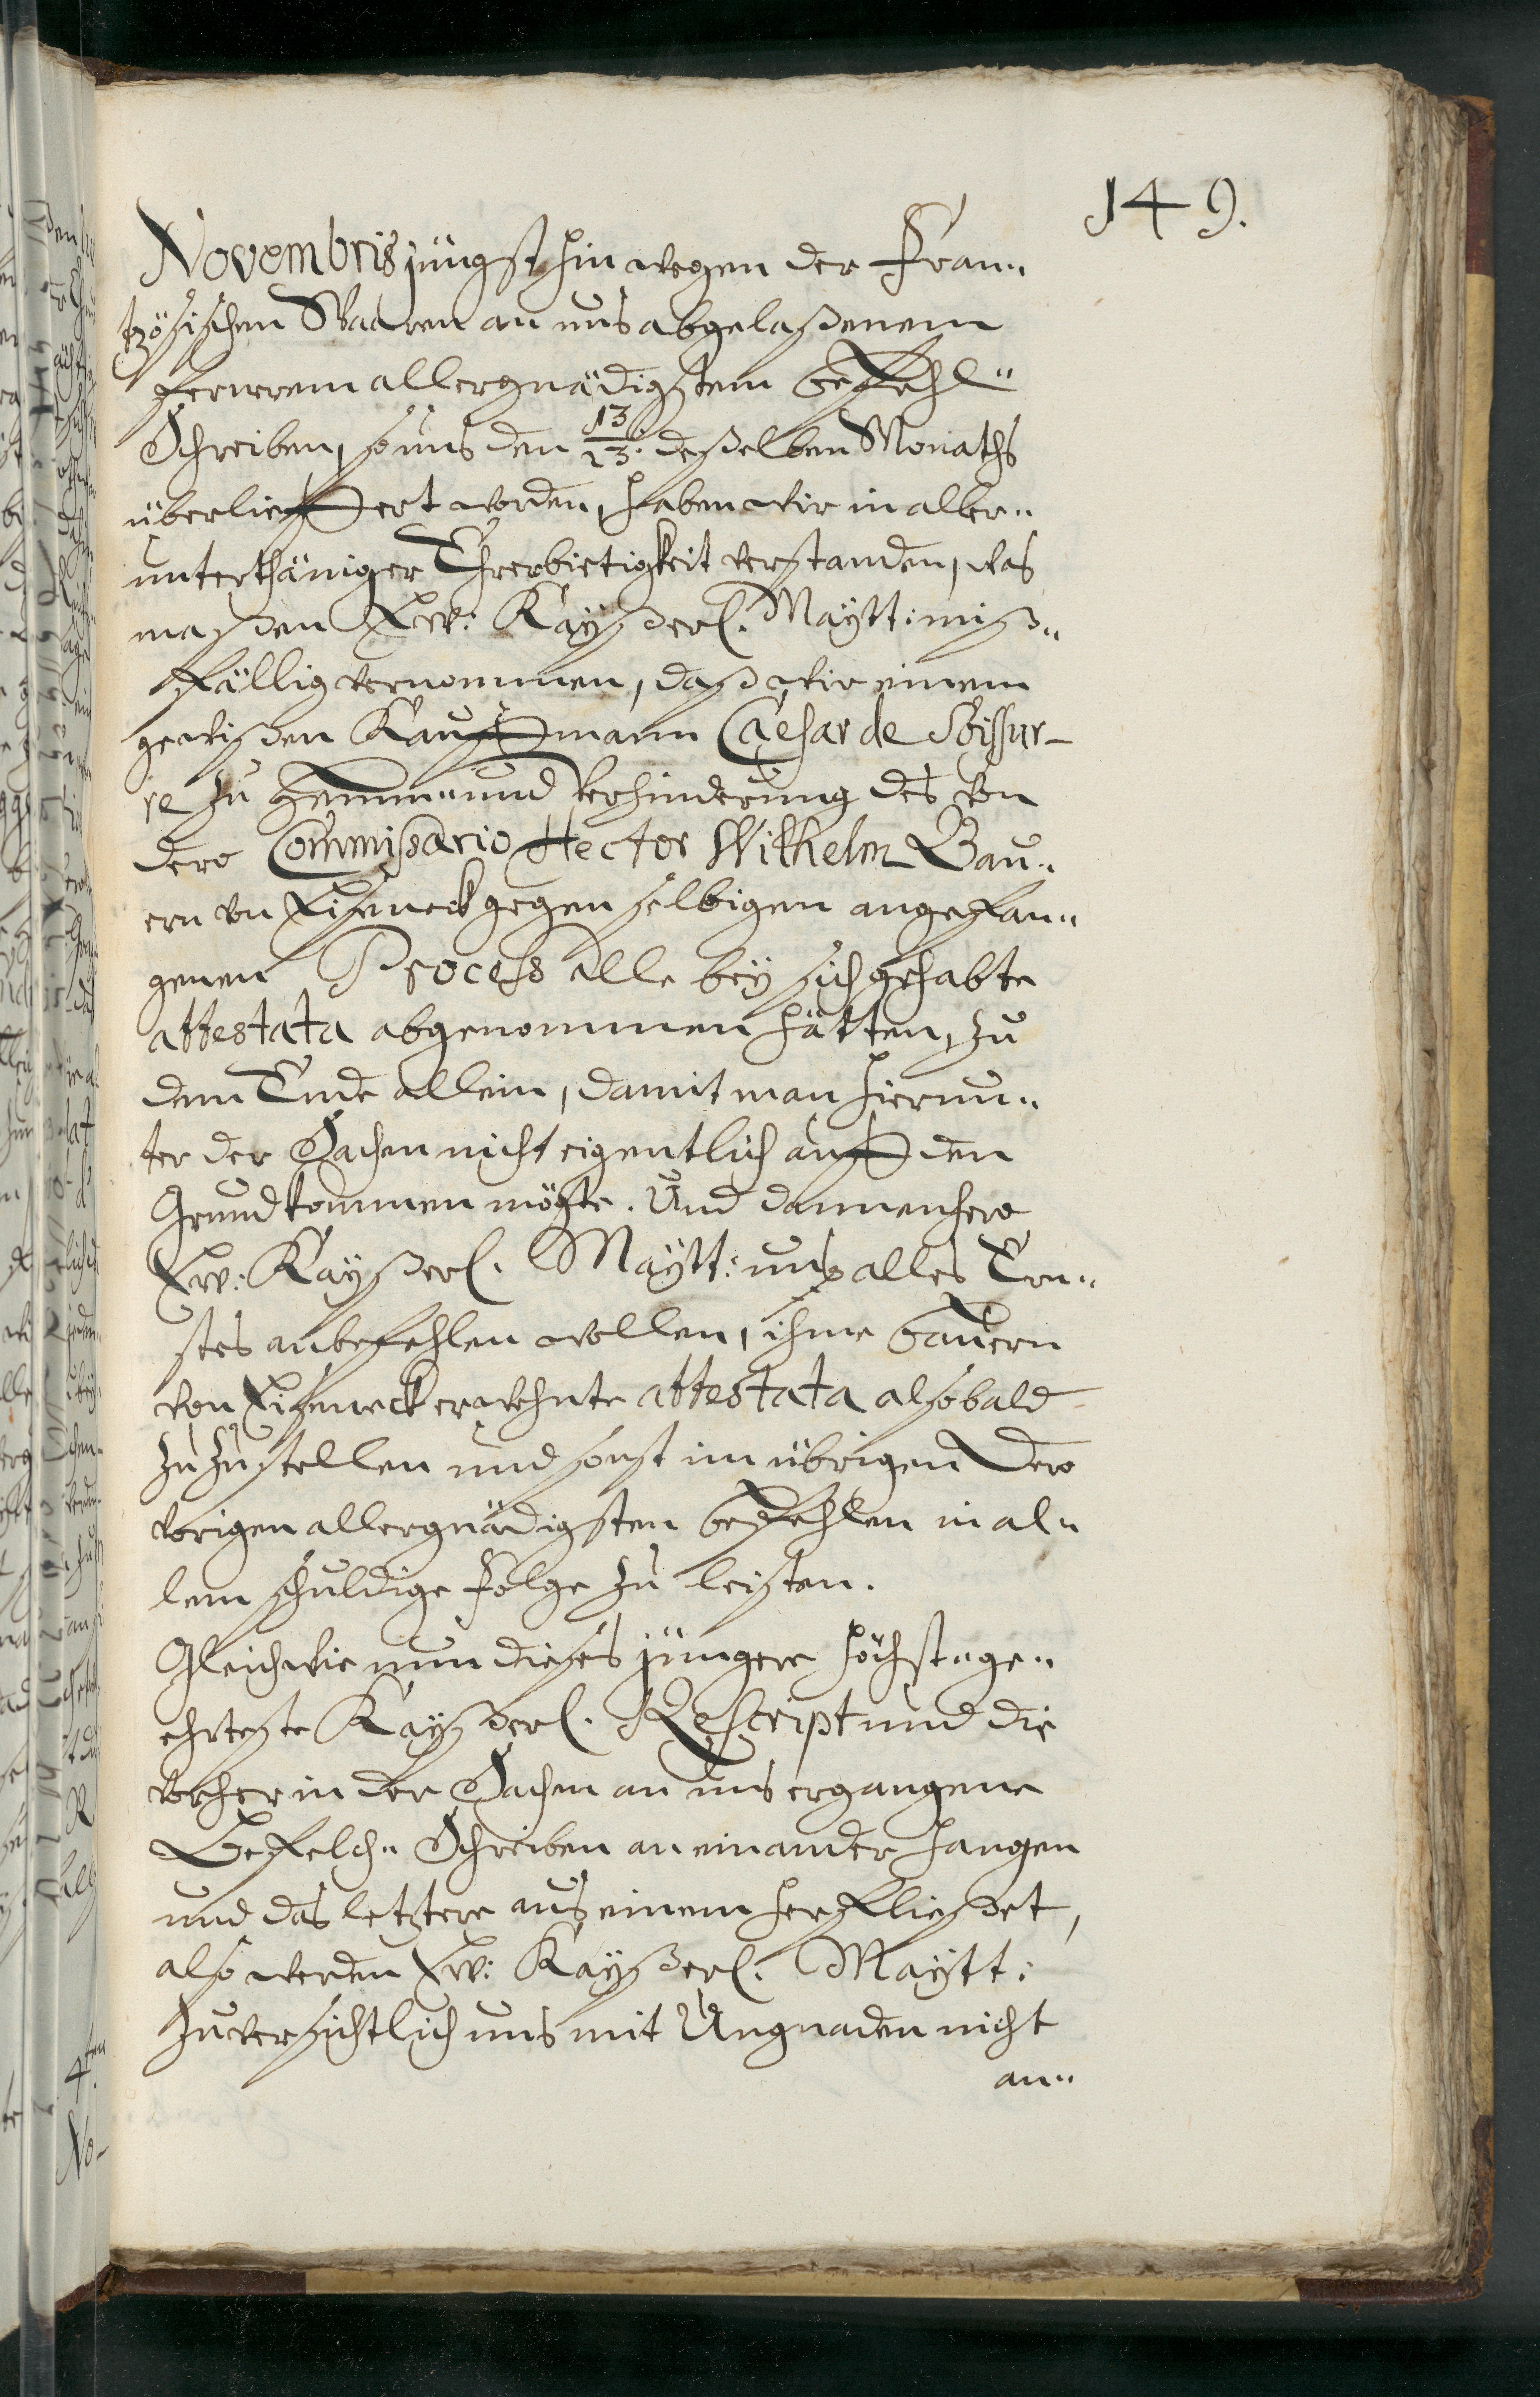 149.
Novembris jüngsthin wegen der Fran„
tzösischen Waaren an uns abgelaßenem
fernerem allergnädigstem Befehl„
Schreiben, so uns den 13/23. deßelben Monaths
überlieffert worden, haben wir in aller„
unterthäniger Ehrerbietigkeit verstanden, was
maßen Ew: Kayßerl. Maytt: miß„
fällig vernommen, daß wir einem
gewißen Kauffmann Caesar de Soissur-
re zu Hemm„ und Verhinderung des von
dero Commißario Hector Wilhelm Bau„
ern von Eiseneck gegen selbigen angefan„
genen Process alle bey sich gehabte
attestata abgenommen hätten, zu
dem Ende allein, damit man hierun„
ter der Sachen nicht eigentlich auff den
Grund kommen mögte. Und dannenhero
Ew: Kayßerl. Maytt: uns alles Ern„
stes anbefehlen wollen, ihme Bauern
von Eiseneck erwehnte attestata alsobald
zuzustellen und sonst im übrigen Dero
vorigen allergnädigsten Befehlen in al„
lem schuldige Folge zu leisten.
Gleichwie nun dieses jüngere höchst„ge„
ehrteste Kayßerl. Rescript und die
vorher in der Sachen an uns ergangene
Befelch„ Schreiben an einander hangen
und das letztere aus einem herfließet,
also werden Ew: Kayßerl. Maytt:
zuversichtlich uns mit Ungnaden nicht
an„